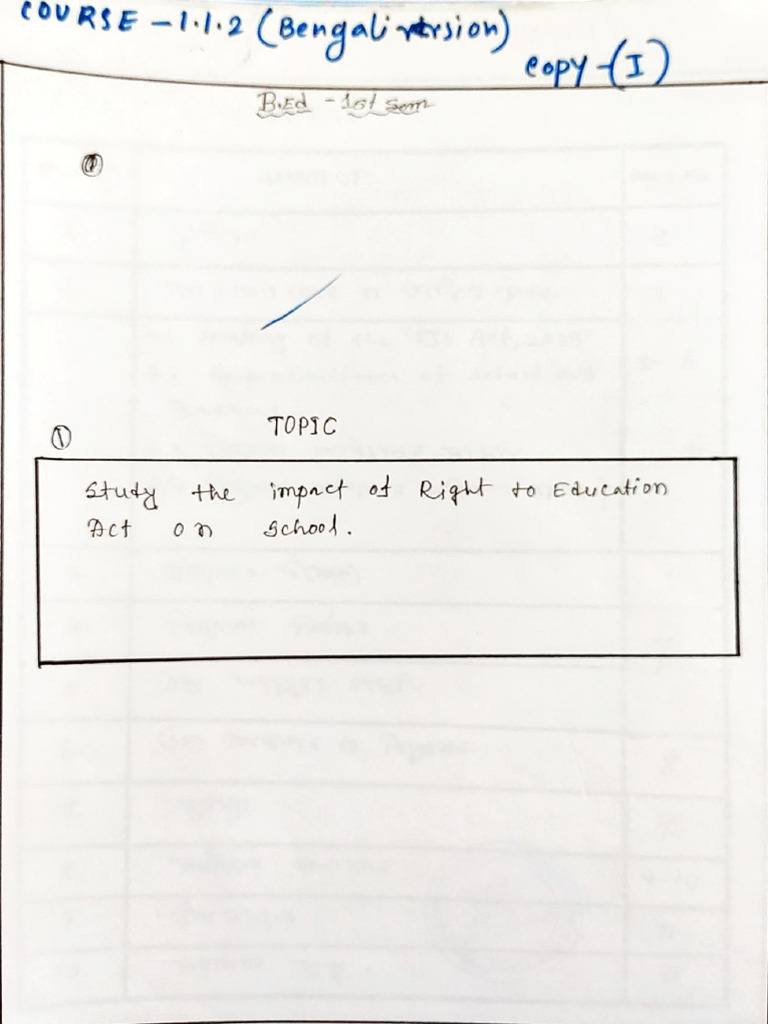 COURSE - 1.1.2 (Bengali version)
copy-(I)
B.Ed - 1st Sem
① TOPIC
Study the impact of Right to Education
Act on School.